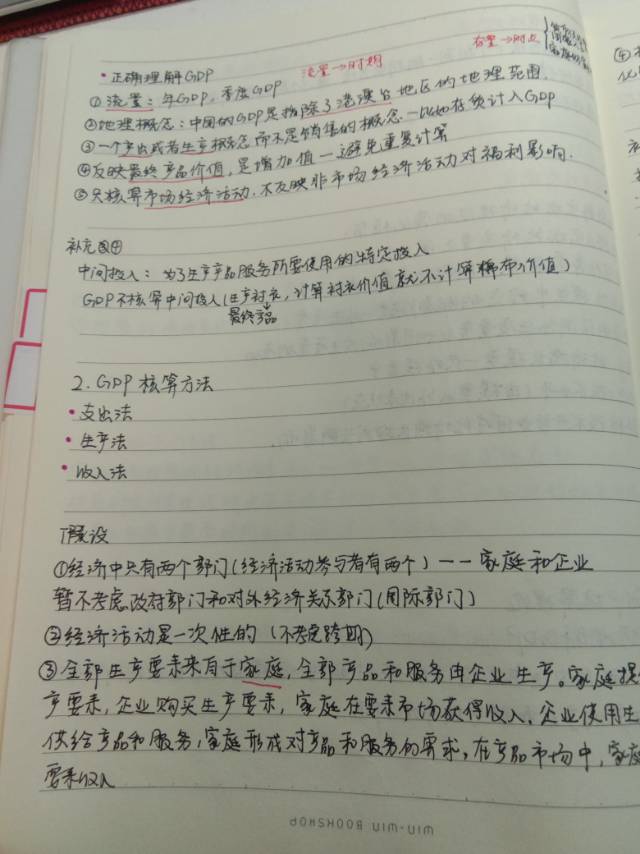 存量→时点
流量→时期
•正确理解GDP
①流量：年GDP，季度GDP
②地理概念：中国的GDP是指除了港澳台地区的地理范围
③一个产出或者生产概念而不是销售的概念—比如存货计入GDP
④反映最终产品价值，是增加值—避免重复计算
⑤只核算市场经济活动.不反映非市场经济活动对福利影响.
补充④
中间投入：为了生产产品服务所要使用的特定投入
GDP不核算中间投入(生产衬衣，计算衬衣价值就不计算棉布价值)
最终产品
2.GDP核算方法
•支出法
•生产法
•收入法
假设
①经济中只有两个部门(经济活动参与者有两个)——家庭和企业
暂不考虑政府部门和对外经济关系部门(国际部门)
②经济活动是一次性的(不考虑跨期)
③全部生产要素来自于家庭，全部产品和服务由企业生产。家庭提
产要素，企业购买生产要素，家庭在要素市场获得收入.企业使用生
供给产品和服务，家庭形成对产品和服务的需求，在产品市场中，家庭
要素收入
WIN-WIN BOOKSHOP